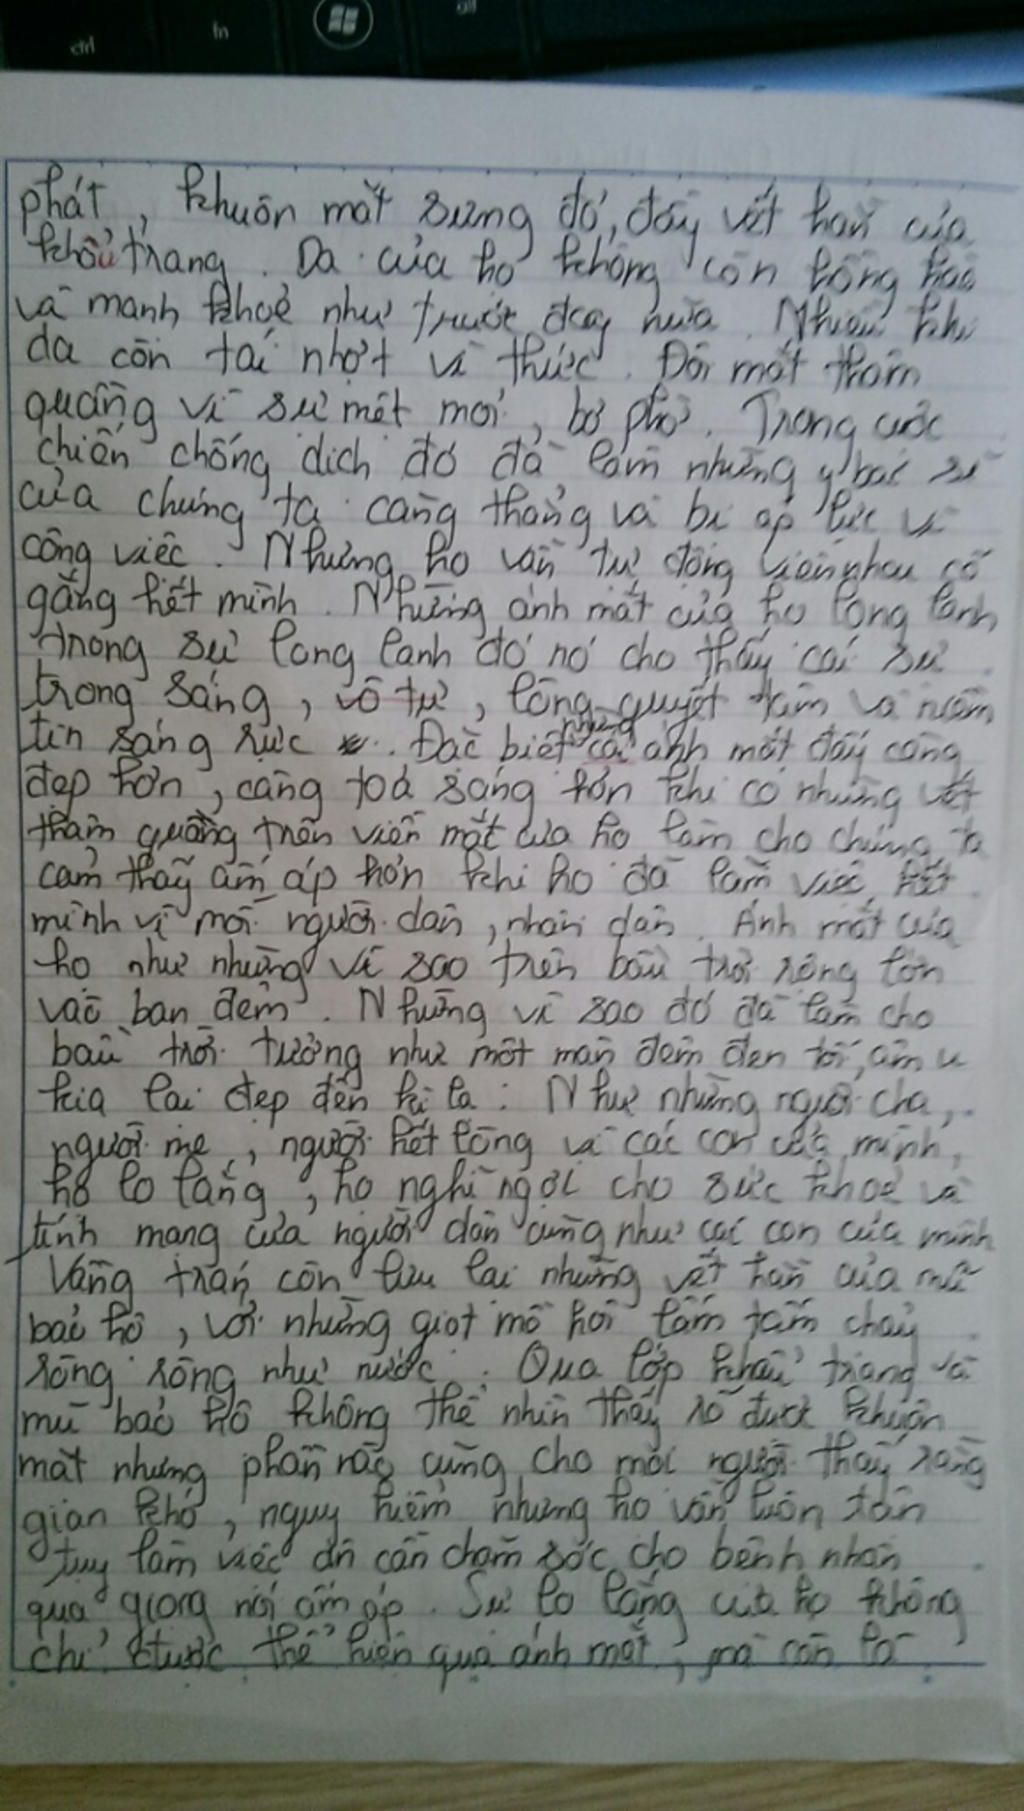 ctrl
fn
alt
phát, khuôn mặt sưng đỏ, đầy vết hằn của
khẩu trang. Da của họ không còn hồng hào
và mạnh khoẻ như trước đây nữa. Nhiều khi
da còn tái nhợt vì thức. Đôi mắt thâm
quầng vì sự mệt mỏi, bơ phờ. Trong cuộc
chiến chống dịch đó đã làm những y bác sĩ
của chúng ta căng thẳng và bị áp lực vì
công việc. Nhưng họ vẫn tự động viên nhau cố
gắng hết mình. Những ánh mắt của họ long lanh
trong sự long lanh đó nó cho thấy cái sự
trong sáng, vô tư, lòng quyết tâm và niềm
tin sáng rực. Đặc biệt những cái ánh mắt đấy càng
đẹp hơn, càng toả sáng hơn khi có những vết
thâm quầng trên viền mắt của họ làm cho chúng ta
cảm thấy ấm áp hơn khi họ đã làm việc hết
mình vì mọi người dân, nhân dân. Ánh mắt của
họ như những vì sao trên bầu trời rộng lớn
vào ban đêm. Những vì sao đó đã làm cho
bầu trời tưởng như một màn đêm đen tối, âm u
kia lại đẹp đến kì lạ. Như những người cha,
người mẹ, người hết lòng vì các con của mình,
họ lo lắng, họ nghĩ ngợi cho sức khoẻ và
tính mạng của người dân cũng như các con của mình
Vầng trán còn lưu lại những vết hằn của mũ
bảo hộ, với những giọt mồ hôi lấm tấm chảy
ròng ròng như nước. Qua lớp khẩu trang và
mũ bảo hộ không thể nhìn thấy rõ được khuôn
mặt nhưng phần nào cũng cho mọi người thấy rằng
gian khó, nguy hiểm nhưng họ vẫn luôn tận
tuỵ làm việc ân cần chăm sóc cho bệnh nhân
qua giọng nói ấm áp. Sự lo lắng của họ không
chỉ được thể hiện qua ánh mắt, mà còn là